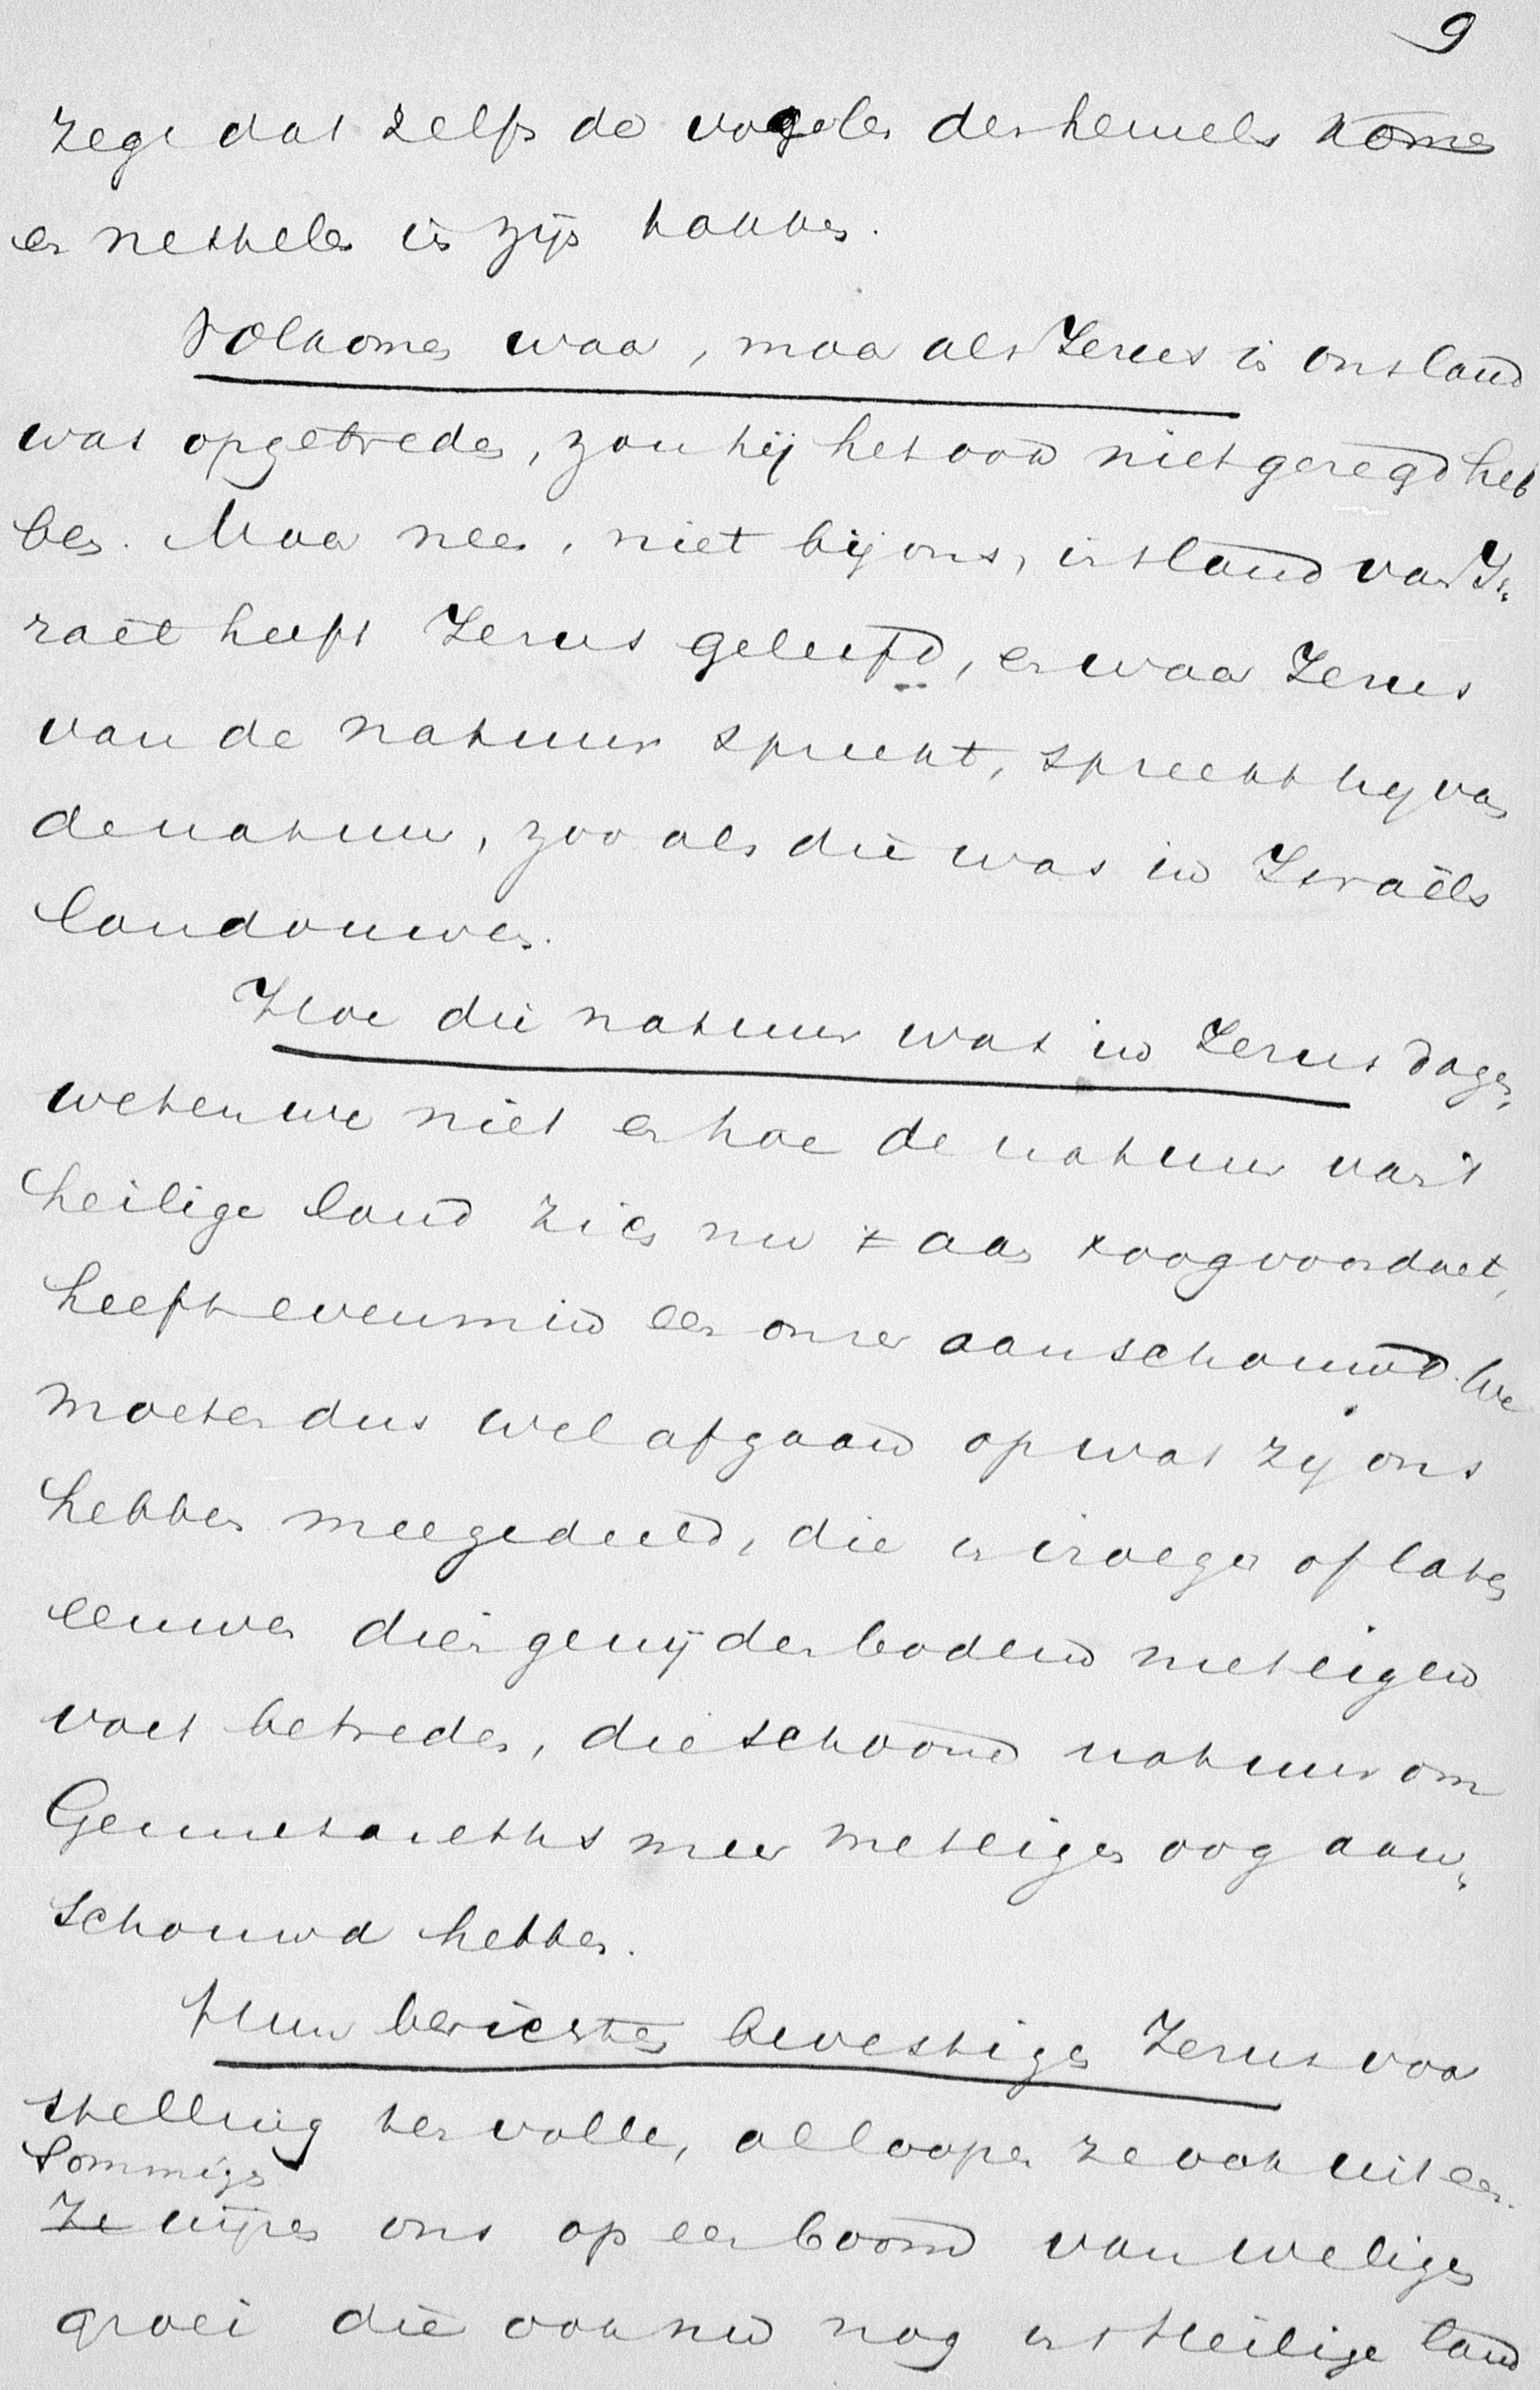 9
zegt dat zelfs de vogelen des hemels komen
en nestelen in zijn takken.
Volkomen waar, maar als Jezus in ons land
was opgetreden, zou hij het ook niet gezegd heb
ben. Maar neen, niet bij ons, in 't land van Is„
raël heeft Jezus geleefd, en waar Jezus
van de natuur spreekt, spreekt hij van
de natuur, zooals die was in Israëls
landouwen.
Hoe die natuur was in Jezus dagen,
weten we niet en hoe de natuur van 't
heilige land zich nu aan 't oog voordoet,
heeft evenmin een onzer aanschouwd. We
moeten dus wel afgaan op wat zij ons
hebben meegedeeld, die in vroeger of later
eeuwen dien gewijden bodem met eigen
voet betreden, die schoone natuur om
Gennesareths meer met eigen oog aan„
schouwd hebben.
Hun berichten bevestigen Jezus voor
stelling ten volle, al loopen ze ook uiteen.
Sommige
Ze wijzen ons op een boom van weligen
groei die ook nu nog in 't Heilige land